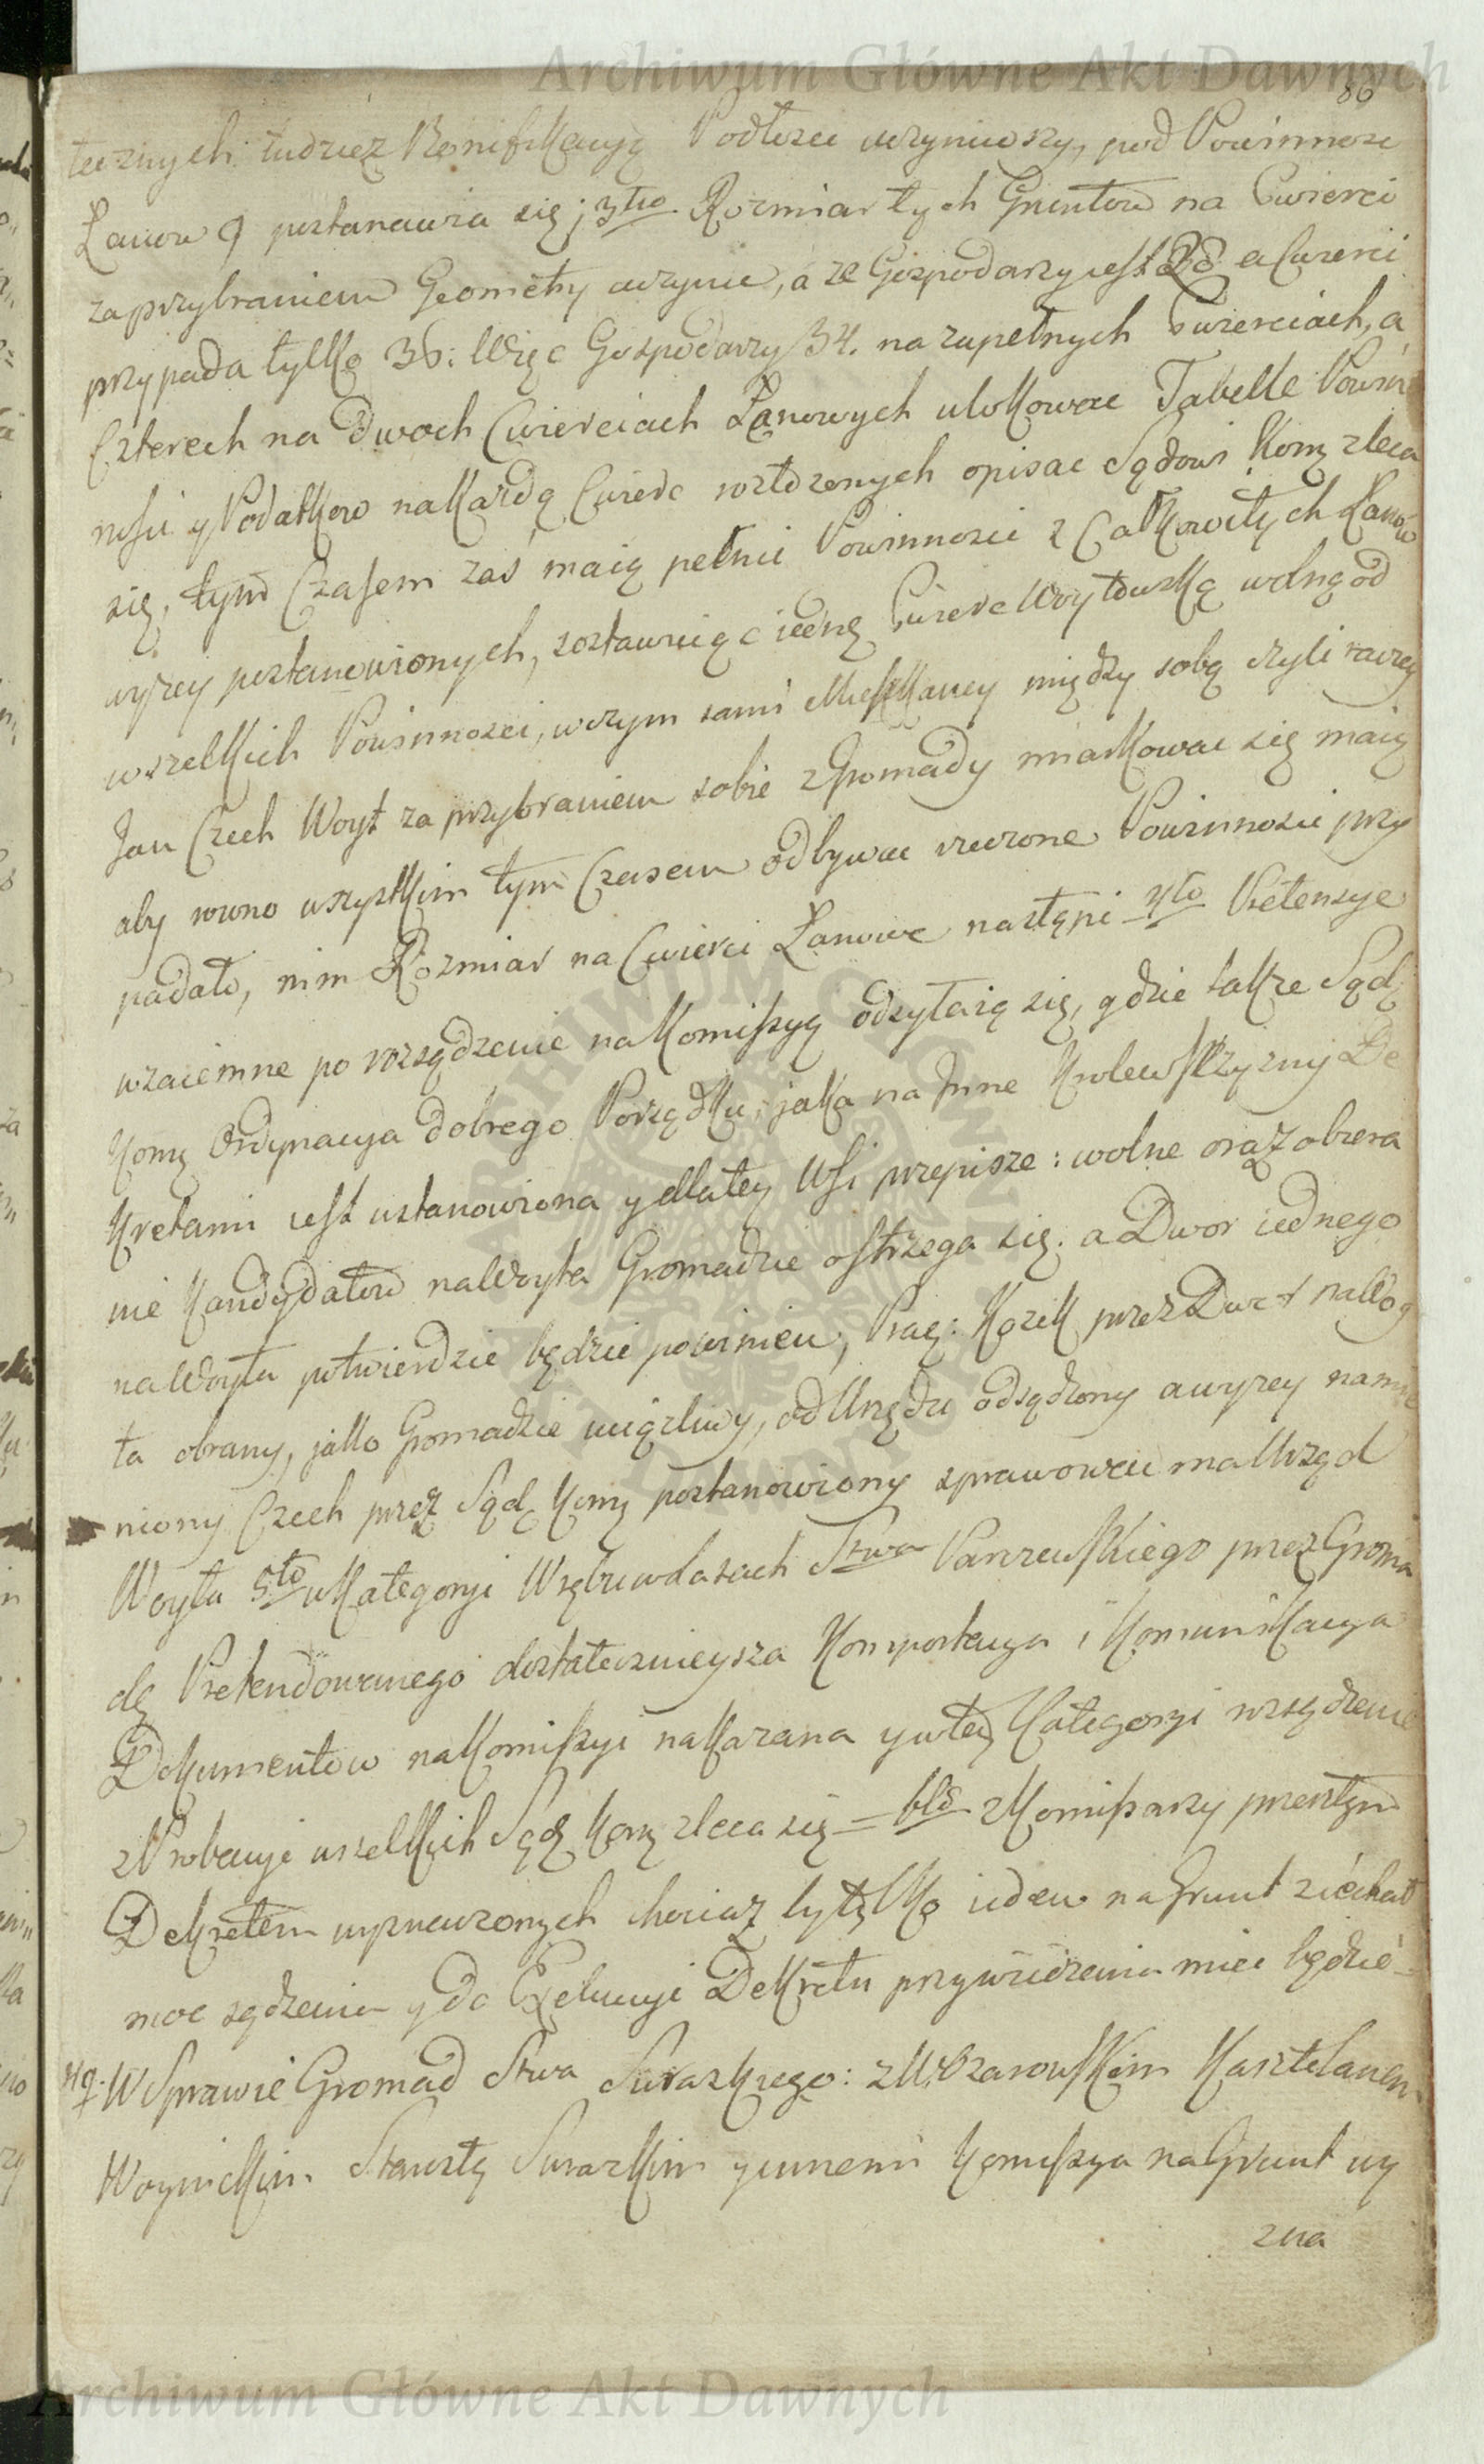 Archiwum Główne Akt Dawnych
86
tecznych tudziez Bonifikacyą Podłosci uczyniwszy, pod Powinnosc
Łanow 9 postanawia się; 3tio Rozmiar tych Gruntow na Cwierci
za przybraniem Geometry uczynic, a ze Gospodarzy iest 38 a Cwierci
przypada tylko 36: Więc Gospodarzy 34. na zupełnych Cwierciach, a
Czterech na Dwoch Cwierciach Łanowych ulokowac Tabelle Powin
nosci y Podatkow na Kazdą Cwierc rozłozonych opisac Sądowi Komg zleca
się, tym Czasem zaś maią pełnic Powinnosci z Całkowitych Łanow
wyzey postanowionych, zostawuiąc iedną Cwierc Woytowską wolną od
wszelkich Powinnosci, w czym sami Mieszkancy między sobą czyli raczey
Jan Czech Woyt za przybraniem sobie z Gromady miarkowac się maią
aby rowno wszystkim tym Czasem odbywac rzeczone Powinnosci przy
padało, nim Rozmiar na Cwierci Łanowe nastąpi 4to Pretensye
wzaiemne po rozsądzenie na Komissyą odsyłaią się, gdzie takze Sąd
Komg Ordynacya dobrego Porządku, jaka na Inne Krolewszczyzny De
kretami iest ustanowiona y dla tey Wsi przepisze: wolne oraz obiera
nie Kandydatow na Woyta Gromadzie ostrzega się: a Dwor iednego
na Woyta potwierdzic będzie powinien, Prac: Kozik przez Dwor na Woy
ta obrany, jako Gromadzie uciązliwy, od Urzędu odsądzony a wyzey namie
niony Czech przez Sąd Komg postanowiony sprawowac ma Urząd
Woyta 5to w Kategoryi Wrębu w Lasach Stwa Parczewskiego przez Groma
dę Pretendowanego dostatecznieysza Komportacya i Komunikacya
Dokumentow na Komissyi nakazana y w tey Kategoryi rozsądzenie
z Probacyi wszelkich Sądg Komg zleca się = 6to z Komissarzy przez tym
Dekretem wyznaczonych chociaz by tylko ieden na Grunt ziechał
moc sądzenia y do Exekucyi Dekretu przywiedzenia miec będzie
49. W Sprawie Gromad Stwa Surazkiego: z U. Ossarowskim Kasztelanem
Woynickim Starostą Surazkim y innemi Komissya na Grunt wy
zna
Archiwum Główne Akt Dawnych